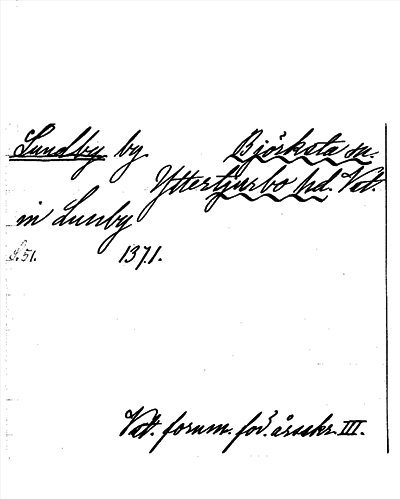 Lundby by. Björksta sn.
Yttertjurbo hd. Vstl.
in Lunby
S. 51. 1371.
Vstl. fornm. för. årsskr. III.